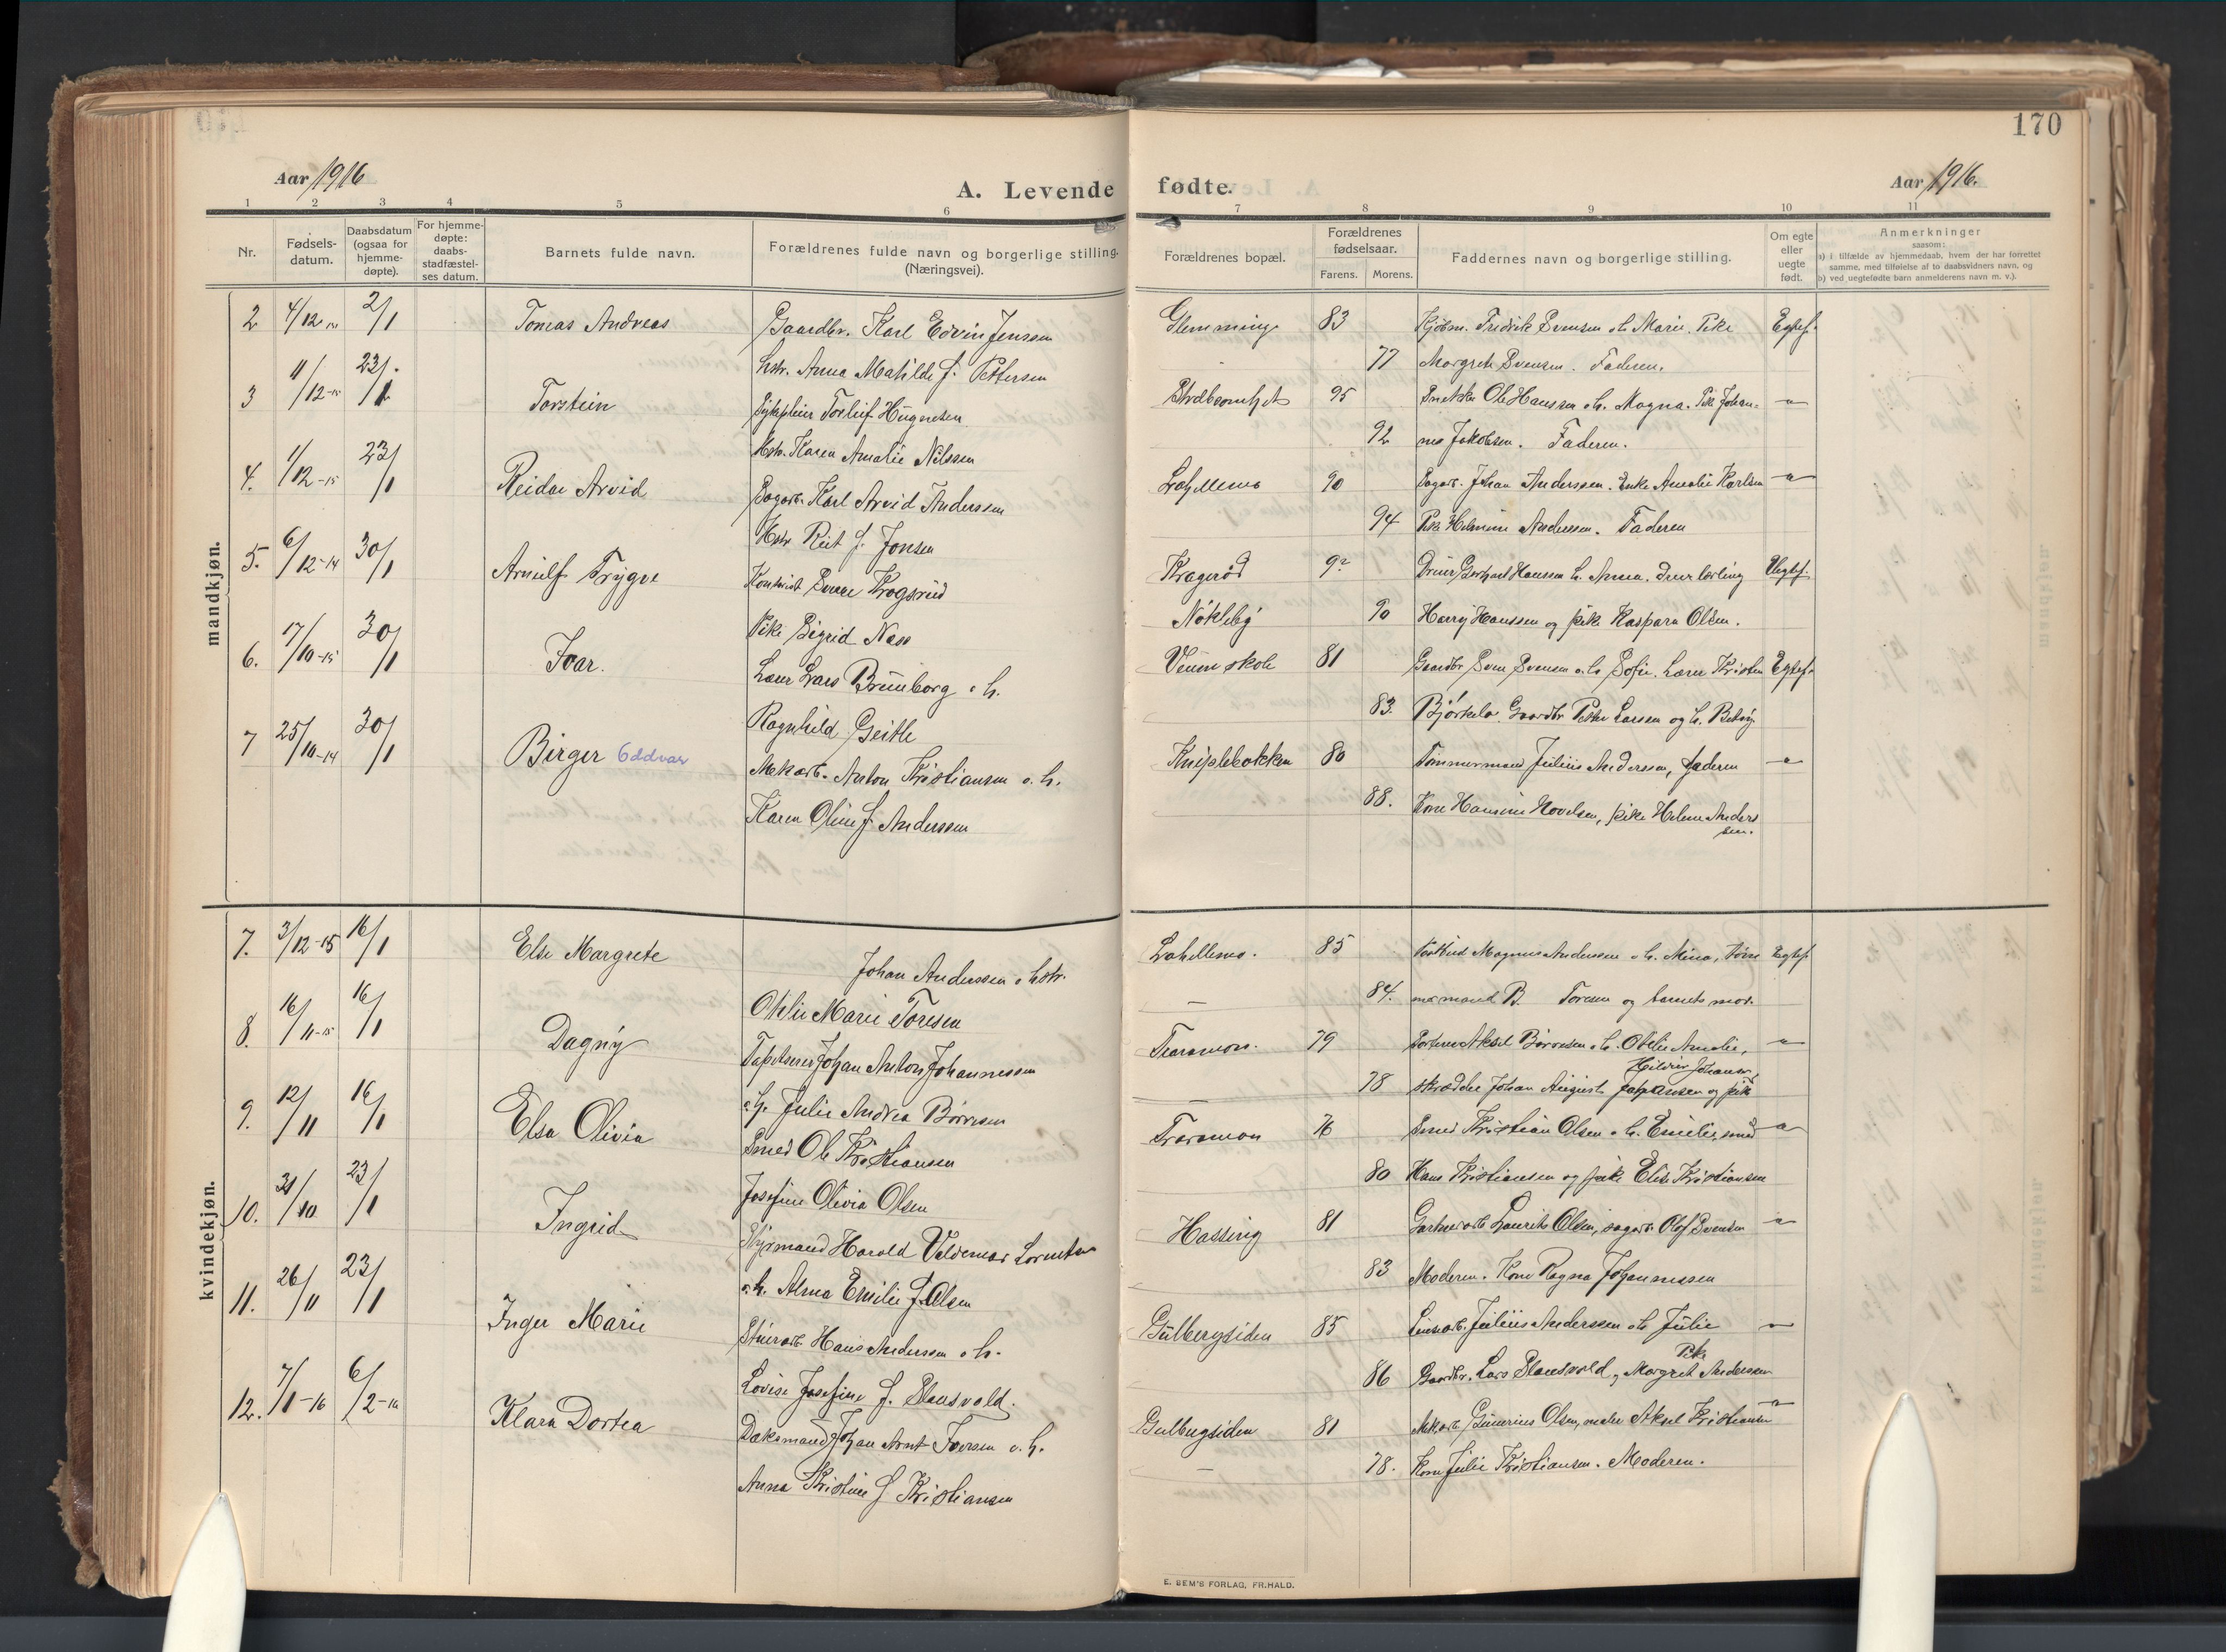 170
Aar 1916
A. Levende fødte.
Aar 1916.
1 2 3 4 5 6 7 8 9 10 11
Nr.
Fødsels-
datum.
Daabsdatum
(ogsaa for
hjemme-
døpte).
For hjemme-
døpte:
daabs-
stadfæstel-
ses datum.
Barnets fulde navn.
Forældrenes fulde navn og borgerlige stilling.
(Næringsvei).
Forældrenes bopæl.
Forældrenes
fødselsaar.
Farens. Morens.
Faddernes navn og borgerlige stilling.
Om egte
eller
uegte
født.
Anmerkninger
saasom:
a) i tilfælde av hjemmedaab, hvem der har forrettet
samme, med tilføielse af to daabsvidners navn, og
b) ved uegtefødte barn anmelderens navn m. v.).
mandkjøn.
2 4/12 2/1 Tomas Andreas Gaardbr. Karl Edvin Jenssen Glemminge 83 Kjøbm. Fredrik Svensen o. h. Marie. Pike Egtef.
hstr. Anna Matilde f. Pettersen 77 Margrete Svensen. Faderen.
3 11/12-15 23/1 Torstein Torleif Hugnesen 95 Snekker Ole Hanssen o. h. Magna. Pike Johan-
Hstr. Karen Amalie Nilssen 92 ne Jakobsen. Faderen.
4. 1/12-15 23/1 Reidar Arvid Sagarb. Karl Arvid Anderssen Lahellemo 90 Sagarb. Johan Anderssen. Enke Amalie Karlsen
Hstr. Rut f. Jonsen 94 Pike Helmine Andersen. Faderen
5. 6/12-14 30/1 Arnulf Trygve Kontorist Sverre Krogsrud Kragerød 92 Hanssen h. Anna. Uegtef.
Pike Sigrid Næss Nökleby 90 Harry Hanssen og pike Kaspara Olsen.
6. 17/10-15 30/1 Ivar. Lærer Lars Brunborg o. h. Veum skole 81 Gaardbr. Sven Svensen o. h. Sofie. Lærer Kristen Egtef.
Ragnhild Geitle 83. Bjørkelo. Gaardbr. Peter Larsen og h. Betsy
7 25/10-14 30/1 Birger Oddvar Mek.arb. Anton Kristiansen o. h. Kniplebakken 80 Tømmermand Julius Andersen, faderen
Karen Oline f. Anderssen 88. Kone Hansine Hovelsen, pike Helene Anders
sen.
kvindekjøn.
7. 3/12-15 16/1 Else Margrete Johan Anderssen o. hstr. Lahellemo. 85 Postbud Magnus Andersen o. h. Mina, Egtef.
Otilie Marie Toresen 84. mand B. Toresen og barnets mor.
8. 16/11-15 16/1 Dagny Tapetserer Johan Anton Johannessen Traramon. 79 Aksel Børresen o. h. Otelie Amalie,
Johansen
o. h. Julie Andrea Børresen 78 skrædder Johan August Johansen og pike
9. 12/11 16/1 Elsa Olivia Smed Ole Kristiansen Traramon 76 Smed Kristian Olsen o. h. Emilie, smed
Josefine Olivia Olsen 80 Hans Kristiansen og pike Elise Kristiansen
10. 31/10 23/1 Ingrid Styrmand Harald Valdemar Lorentzen Hassing 81 Gartnerarb. Laurits Olsen, sagarb. Olaf Svensen
o. h. Alma Emilie f. Olsen 83 Moderen. Kone Ragna Johannessen
11. 26/11 23/1 Inger Marie Stuerarb. Hans Anderssen o. h. Gulbergsiden 85 Julius Anderssen o. h. Julie
Pike
Lovise Josefine f. Slansvold. 86 Gaardbr. Lars Slansvold, Margret Andersen
12. 7/1-16 6/2-16 Klara Dortea Dæksmand Johan Arnt Iversen o. h. Gulbergsiden 81 Mek.arb. Gunerius Olsen, maler Aksel Kristiansen
Anna Kristine f. Kristiansen 78. Kone Julie Kristiansen. Moderen.
E. SEM'S FORLAG, FR.HALD.